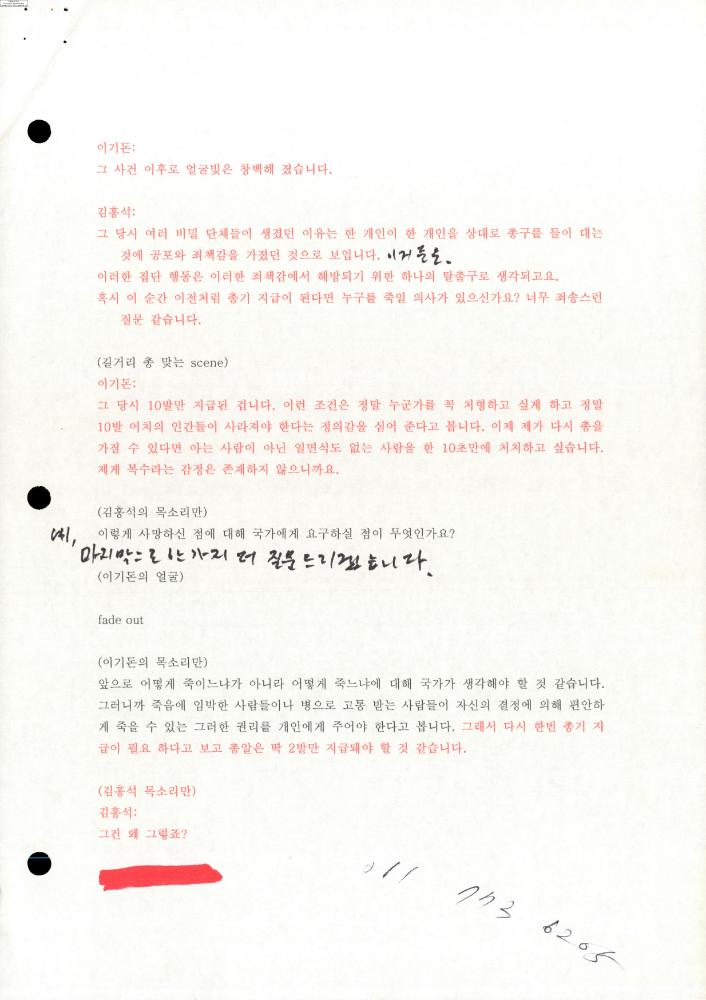 이기돈:
그 사건 이후로 얼굴빛은 창백해 졌습니다.
김홍석:
그 당시 여러 비밀 단체들이 생겼던 이유는 한 개인이 한 개인을 상대로 총구를 들이 대는
것에 공포와 죄책감을 가졌던 것으로 보입니다.
이러한 집단 행동은 이러한 죄책감에서 해방되기 위한 하나의 탈출구로 생각되고요.
혹시 이 순간 이전처럼 총기 지급이 된다면 누구를 죽일 의사가 있으신가요? 너무 죄송스런
질문 같습니다.
(길거리 총 맞는 scene)
이기돈:
그 당시 10발만 지급된 겁니다. 이런 조건은 정말 누군가를 꼭 처형하고 싶게 하고 정말
10발 어치의 인간들이 사라져야 한다는 정의감을 심어 준다고 봅니다. 이제 제가 다시 총을
가질 수 있다면 아는 사람이 아닌 일면식도 없는 사람을 한 10초만에 처치하고 싶습니다.
제게 복수라는 감정은 존재하지 않으니까요.
(김홍석의 목소리만)
이렇게 사망하신 점에 대해 국가에게 요구하실 점이 무엇인가요?
네, 마지막으로 한가지 더 질문드리겠습니다.
(이기돈의 얼굴)
fade out
(이기돈의 목소리만)
앞으로 어떻게 죽이느냐가 아니라 어떻게 죽느냐에 대해 국가가 생각해야 할 것 같습니다.
그러니까 죽음에 임박한 사람들이나 병으로 고통 받는 사람들이 자신의 결정에 의해 편안하
게 죽을 수 있는 그러한 권리를 개인에게 주어야 한다고 봅니다. 그래서 다시 한번 총기 지
급이 필요 하다고 보고 총알은 딱 2발만 지급돼야 할 것 같습니다.
(김홍석 목소리만)
김홍석:
그건 왜 그렇죠?
011 773 6205